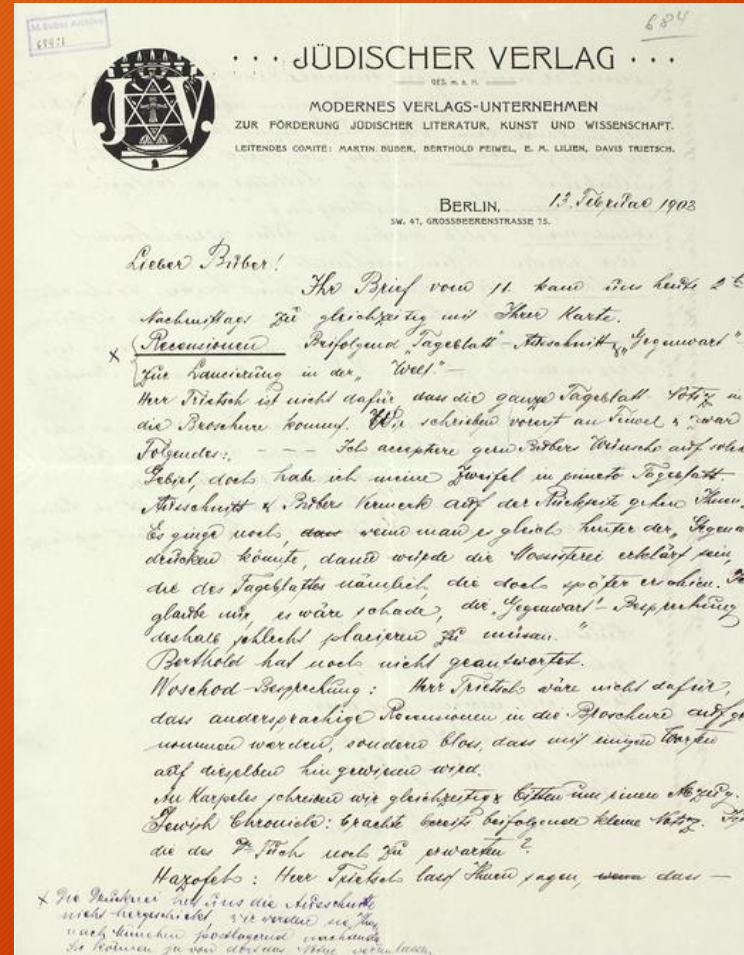 M. Buber Archive
684
··· JÜDISCHER VERLAG ···
GES. m. b. H.
MODERNES VERLAGS-UNTERNEHMEN
ZUR FÖRDERUNG JÜDISCHER LITERATUR, KUNST UND WISSENSCHAFT.
LEITENDES COMITÉ: MARTIN BUBER, BERTHOLD FEIWEL, E. M. LILIEN, DAVIS TRIETSCH.
J.V.
BERLIN, 13. Februar 1903
SW. 47, GROSSBEERENSTRASSE 75.
Lieber Buber!
Ihr Brief vom 11. kam uns heute 2 te
Nachmittags zu gleichzeitig mit Ihrer Karte.
x Recensionen Beifolgend "Tageblatt"-Ausschnitt & "Gegenwart"-
Zur Lancierung in der "Welt."—
Herr Trietsch ist nicht dafür dass die ganze Tageblatt-Notiz in
die Broschure kommt. Wir schrieben vorerst an Feiwel & zwar
Folgendes: „ — — — Ich acceptiere gern Bubers Wünsche auf
Gebiet, doch habe ich meine Zweifel in puncto Tageblatt.
Ausschnitt & Bubers Vermerk auf der Rückseite gehen Ihnen
Es ginge noch, dass wenn man es gleich hinter der „
drucken könnte, dann würde die erklärt sein,
die des Tageblattes nämlich, die doch später erschien.
glaube nur, es wäre schade, die „Gegenwart"-Besprechung
deshalb schlecht placieren zu müssen."
Berthold hat noch nicht geantwortet.
Woschod-Besprechung: Herr Trietsch wäre nicht dafür,
dass andersprachige Recensionen in die Broschure aufge
nommen werden, sondern bloss, dass mit einigen Worten
auf dieselben hingewiesen wird.
An Karpeles schreiben wir gleichzeitig & bitten um einen Abzug.
Jewish Chronicle: brachte bereits beifolgende kleine Notiz.
die des Fuchs noch zu erwarten?
Hazofeh: Herr Trietsch lässt Ihnen sagen, wenn dass —
x Die Druckerei hat uns die Ausschnitte
nicht hergeschickt, wir werden sie Ihnen
nach München postlagernd nachsenden
Sie können ja von dort das Nötige veranlassen.